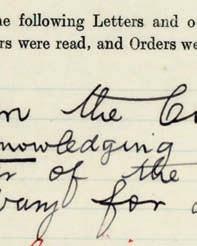 e following Letters and o
rs were read, and Orders we
m the C
nowledging
r of the
for